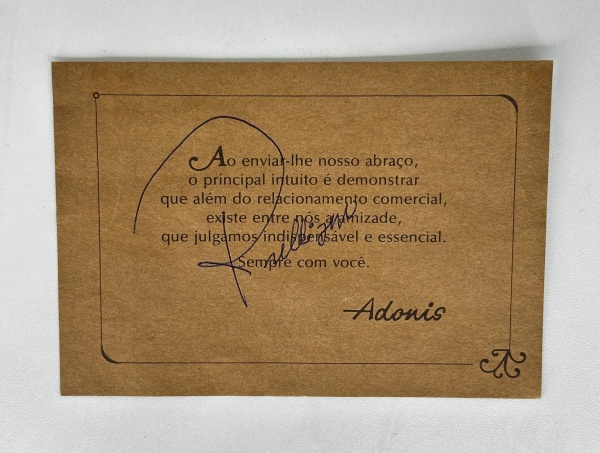 Ao enviar-lhe nosso abraço,
o principal intuito é demonstrar
que além do relacionamento comercial,
existe entre nós a amizade,
que julgamos indispensável e essencial.
Sempre com você.
Adonis